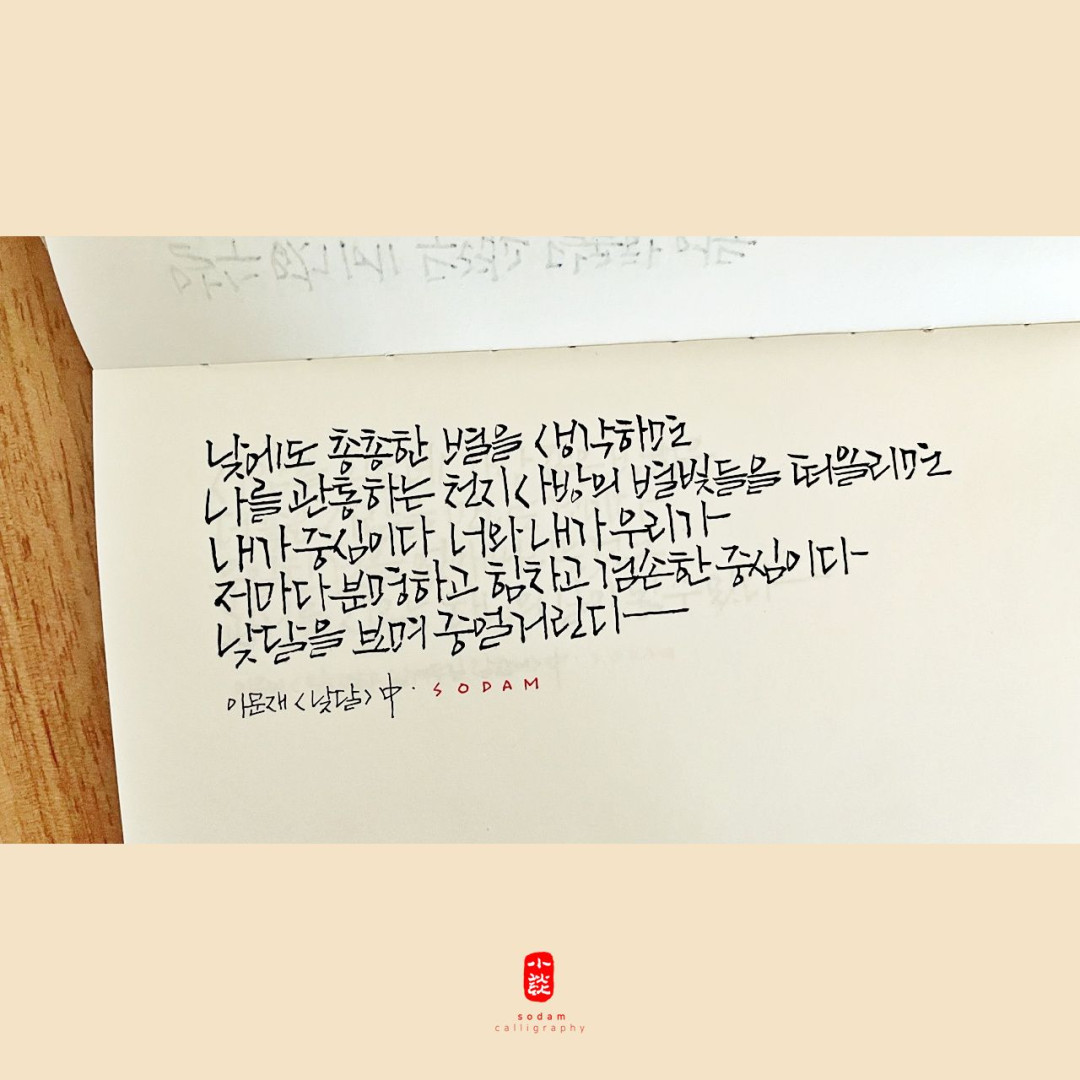 낮에도 총총한 별을 생각하면
나를 관통하는 천지사방의 별빛들을 떠올리면
내가 중심이다 너와 내가 우리가
저마다 분명하고 힘차고 겸손한 중심이다
낮달을 보며 중얼거린다
이문재 <낮달> 中. SODAM
小談
sodam
calligraphy